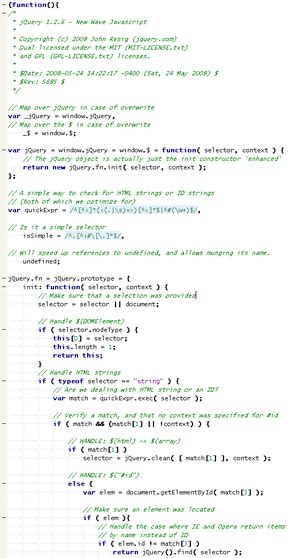 (function(){
/*
 * jQuery 1.2.6 - New Wave Javascript
 *
 * Copyright (c) 2008 John Resig (jquery.com)
 * Dual licensed under the MIT (MIT-LICENSE.txt)
 * and GPL (GPL-LICENSE.txt) licenses.
 *
 * $Date: 2008-05-24 14:22:17 -0400 (Sat, 24 May 2008) $
 * $Rev: 5685 $
 */

// Map over jQuery in case of overwrite
var _jQuery = window.jQuery,
// Map over the $ in case of overwrite
    _$ = window.$;

var jQuery = window.jQuery = window.$ = function( selector, context ) {
    // The jQuery object is actually just the init constructor 'enhanced'
    return new jQuery.fn.init( selector, context );
};

// A simple way to check for HTML strings or ID strings
// (both of which we optimize for)
var quickExpr = /^[^<]*(<(.|\s)+>)[^>]*$|^#(\w+)$/,

// Is it a simple selector
    isSimple = /^.[^:#\[\.]*$/,

// Will speed up references to undefined, and allows munging its name.
    undefined;

jQuery.fn = jQuery.prototype = {
    init: function( selector, context ) {
        // Make sure that a selection was provided
        selector = selector || document;

        // Handle $(DOMElement)
        if ( selector.nodeType ) {
            this[0] = selector;
            this.length = 1;
            return this;
        }
        // Handle HTML strings
        if ( typeof selector == "string" ) {
            // Are we dealing with HTML string or an ID?
            var match = quickExpr.exec( selector );

            // Verify a match, and that no context was specified for #id
            if ( match && (match[1] || !context) ) {

                // HANDLE: $(html) -> $(array)
                if ( match[1] )
                    selector = jQuery.clean( [ match[1] ], context );

                // HANDLE: $("#id")
                else {
                    var elem = document.getElementById( match[3] );

                    // Make sure an element was located
                    if ( elem ){
                        // Handle the case where IE and Opera return items
                        // by name instead of ID
                        if ( elem.id != match[3] )
                            return jQuery().find( selector );